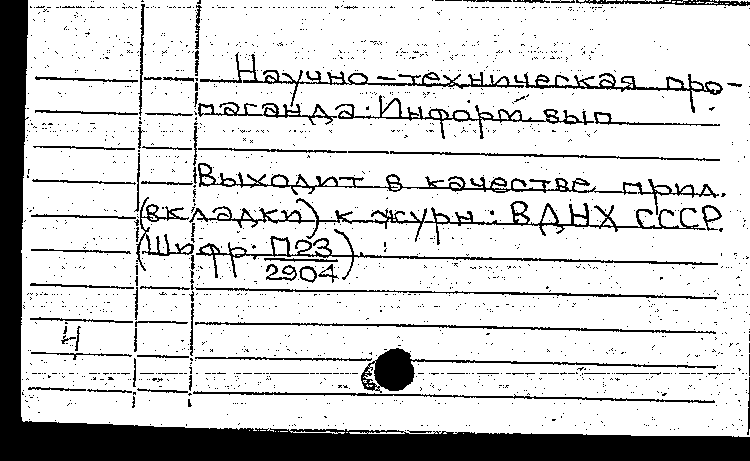 Научно-техническая про-
паганда: Информ. вып.
Выходит в качестве прил.
(вкладки) к журн.: ВДНХ СССР.
(Шифр: П23/2904)
Н